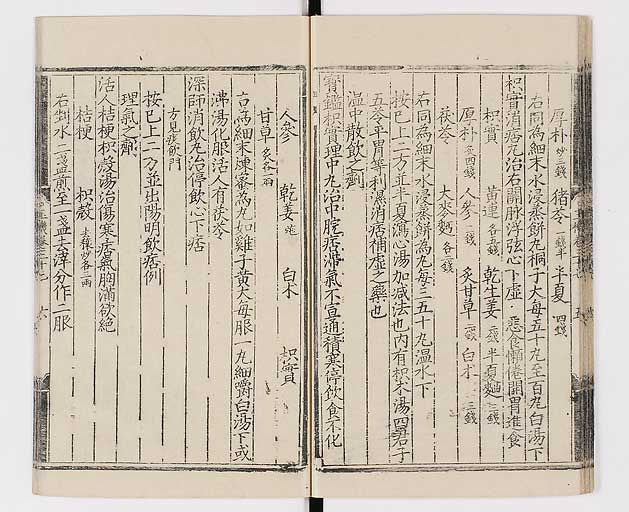 厚朴 炒三錢 猪苓 一錢半 半夏 四錢
右同爲細末水浸蒸餅丸桐子大每五十丸至百丸白湯下
枳實消痞丸治右關脉浮弦心下虛 惡食懶倦開胃進食
枳實 黃連 各五錢 乾生姜 二錢 半夏麯 三錢
厚朴 炙四錢 人參 三錢 炙甘草 二錢 白朮 三錢
茯苓 大麥麯 各二錢
右同爲細末水浸蒸餅爲丸每三五十丸溫水下
按已上二方並半夏瀉心湯加减法也内有枳朮湯四君子
五苓平胃等利濕消痞補虛之藥也
溫中散飲之劑
寶鑑枳實理中丸治中脘痞滯氣不宣通積寒停飲食不化
人參 乾姜 炮 白朮 枳實
甘草 炙各一兩
右爲細末煉蜜爲丸如雞子黃大每服一丸細嚼白湯下或
沸湯化服活人有茯苓
深師消飲丸治停飲心下痞
方見痰飲門
按已上二方並出陽明飲痞例
理氣之劑
活人桔梗枳殼湯治傷寒痞氣胸滿欲絶
桔梗 枳殼 去穰炒各一兩
右剉水二盞煎至一盞去滓分作二服